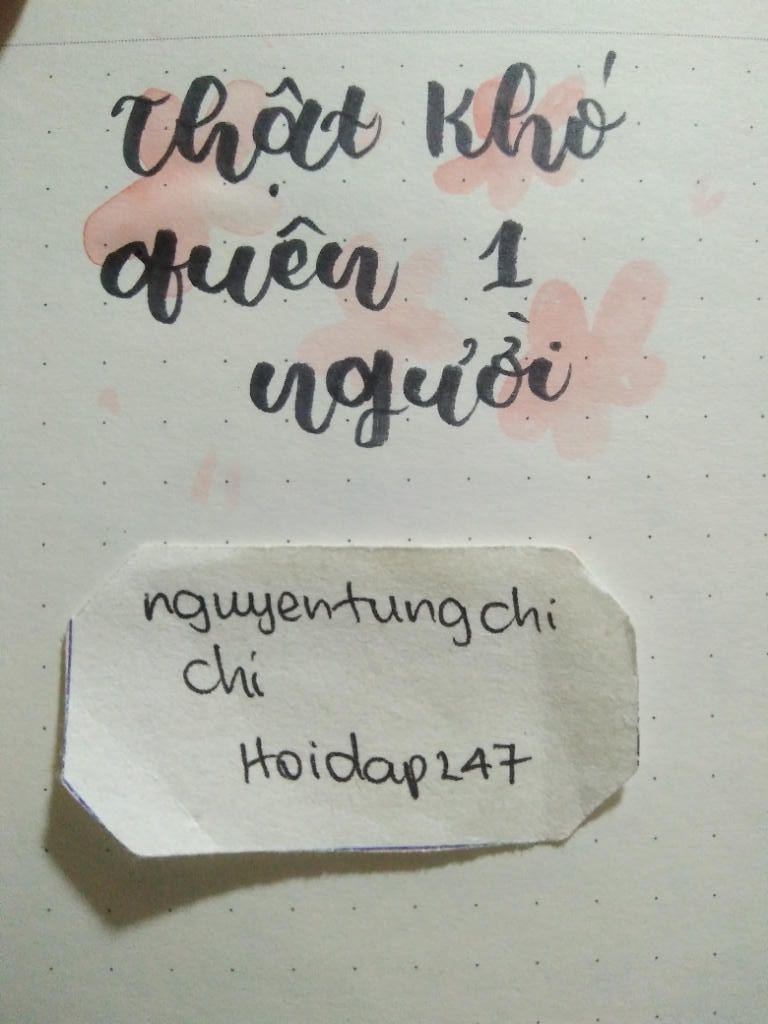 Thật Khó
quên 1
người
nguyentungchi
chi
Hoidap247